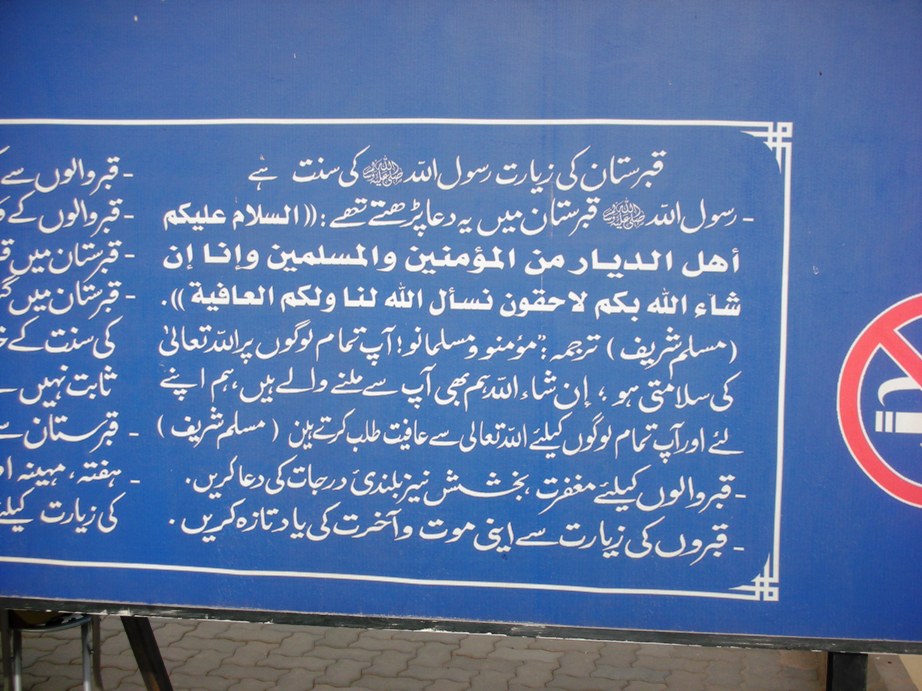 قبرستان کی زیارت رسول اللہ ﷺ کی سنت ہے
- رسول اللہ ﷺ قبرستان میں یہ دعا پڑھتے تھے: ((السلام علیکم
أهل الديار من المؤمنين والمسلمين وإنا إن
شاء الله بكم لاحقون نسأل الله لنا ولكم العافية)).
(مسلم شریف) ترجمہ: "مؤمنو و مسلمانو! آپ تمام لوگوں پر اللہ تعالیٰ
کی سلامتی ہو ؛ إن شاء اللہ ہم بھی آپ سے ملنے والے ہیں، ہم اپنے
لئے اور آپ تمام لوگوں کیلئے اللہ تعالی سے عافیت طلب کرتے ہین (مسلم شریف)
- قبر والوں کیلئے مغفرت، بخشش نیز بلندئ درجات کی دعا کریں.
- قبروں کی زیارت سے اپنی موت و آخرت کی یاد تازہ کریں.
- قبر والوں سے
- قبر والوں کے
- قبرستان میں
- قبرستان میں
کی سنت کے
ثابت نہیں
- قبرستان
- ہفتہ، مہینہ
کی زیارت کیلئے